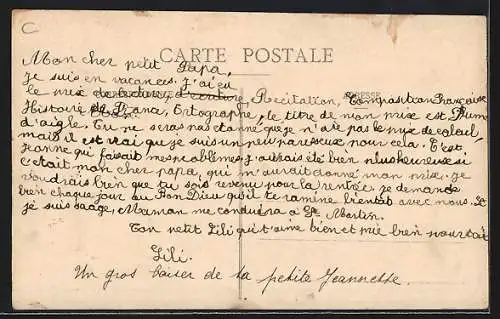 C
CARTE POSTALE
Mon cher petit Papa,
je suis en vacances. J'ai eu
le prix de lecture, d'écriture, Recitation, Composition Française
ADRESSE
Histoire de France, Ortographe, le titre de mon prix est Plume
d'aigle. Tu ne seras pas étonné que je n'aie pas le prix de calcul
mais il est vrai que je suis un peu paresseux pour cela. C'est
Jeanne qui faisait mes problèmes. J'aurais été bien plus heureuse si
c'était mon cher papa, qui m'aurait donné mon prix. Je
voudrais bien que tu sois revenu pour la rentrée je demande
bien chaque jour au Bon Dieu qu'il te ramène bientôt avec nous. Si
je suis sage, Maman me conduira à St Martin.
Ton petit Lili qui t'aime bien et prie bien pour toi
Lili.
Un gros baiser de ta petite Jeannette.